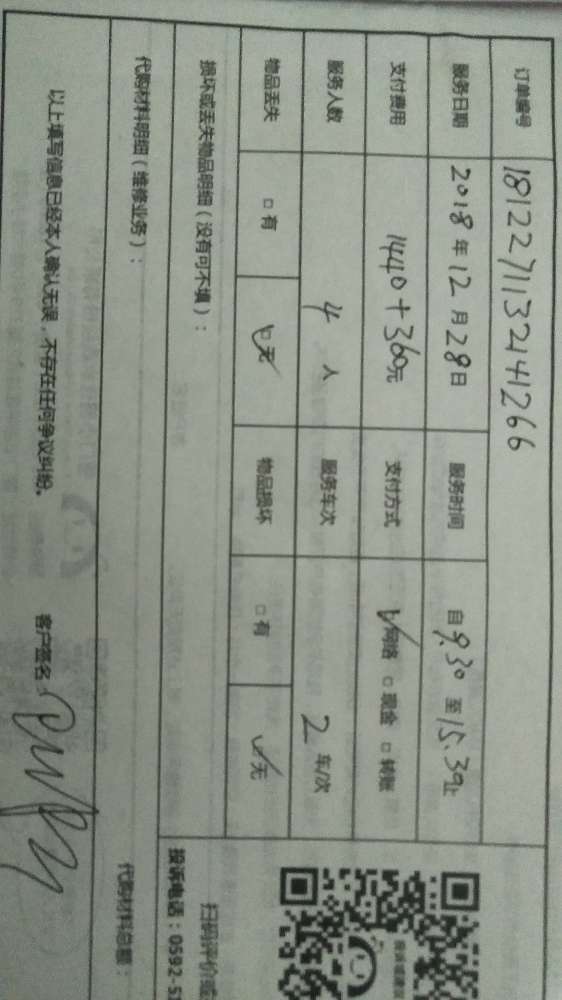 订单编号 181227113214126​6
服务日期 2018年12月28日 服务时间 自9.30至15.30止
支付费用 1440+360元 支付方式 ☑网络 □现金 □转账
服务人数 4人 服务车次 2车/次
物品丢失 □有 ☑无 物品损坏 □有 ☑无
损坏或丢失物品明细（没有可不填）：
扫码评价或
投诉电话：0592-5
代购材料明细（维修业务）： 代购材料总额：
以上填写信息已经本人确认无误，不存在任何争议纠纷。 客户签名：